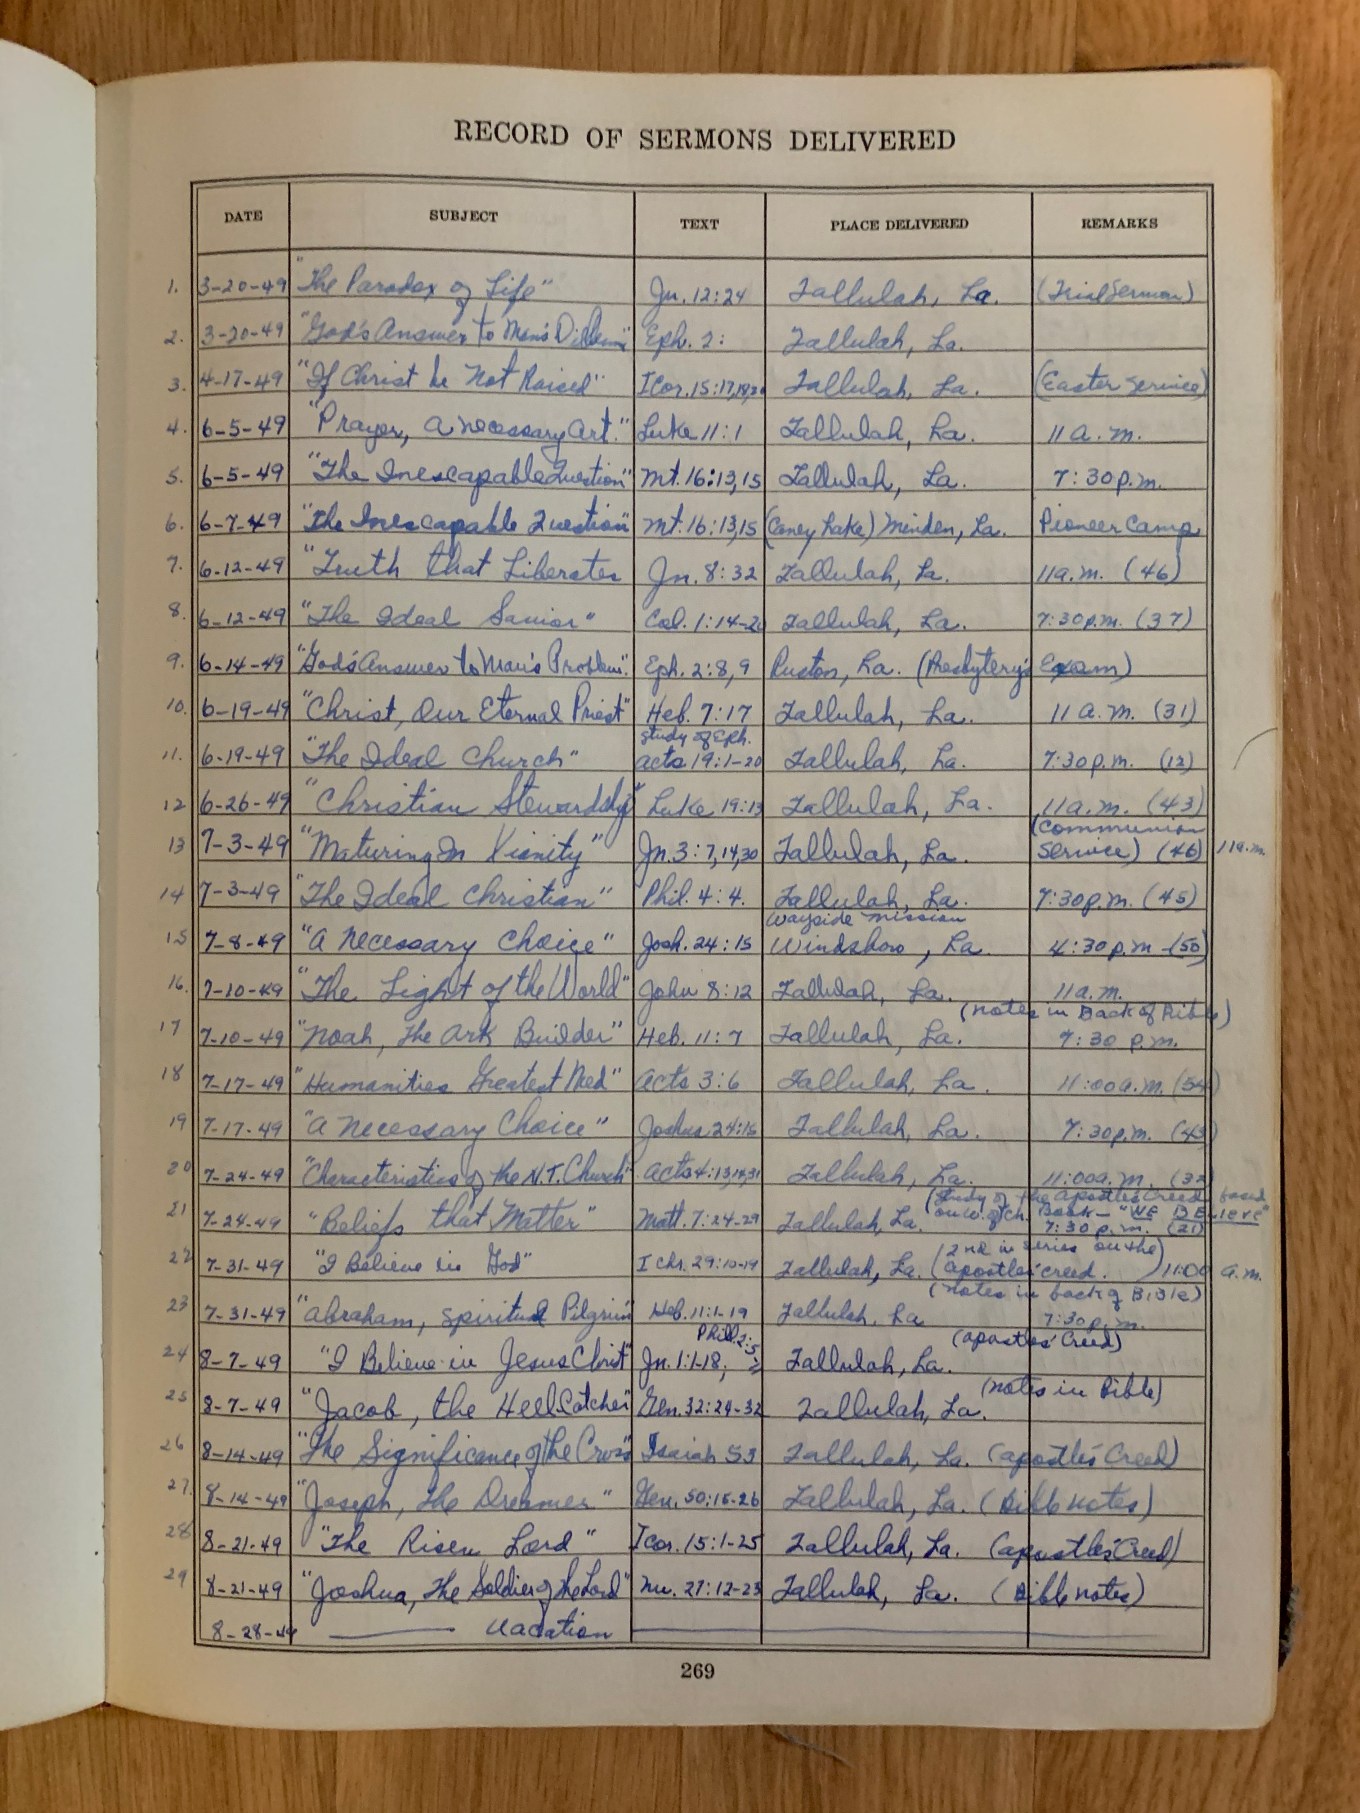 RECORD OF SERMONS DELIVERED
DATE SUBJECT TEXT PLACE DELIVERED REMARKS
1. 3-20-49 "The Paradox of Life" Jn. 12:24 Tallulah, La. (Trial Sermon)
2. 3-20-49 "God's Answer to Man's Dilemma" Eph. 2: Tallulah, La.
3. 4-17-49 "If Christ be Not Raised" I Cor. 15:17,19,20 Tallulah, La. (Easter Service)
4. 6-5-49 "Prayer, a necessary Art." Luke 11:1 Tallulah, La. 11 a.m.
5. 6-5-49 "The Inescapable Question" Mt. 16:13,15 Tallulah, La. 7:30 p.m.
6. 6-7-49 "The Inescapable Question" Mt. 16:13,15 (Caney Lake) Minden, La. Pioneer Camp
7. 6-12-49 "Truth that Liberates Jn. 8:32 Tallulah, La. 11 a.m. (46)
8. 6-12-49 "The Ideal Savior" Col. 1:14-20 Tallulah, La. 7:30 p.m. (37)
9. 6-14-49 "God's Answer to Man's Problem". Eph. 2:8,9 Ruston, La. (Presbytery's Exam)
10. 6-19-49 "Christ, Our Eternal Priest" Heb. 7:17 Tallulah, La. 11 a.m. (31)
study of Eph.
11. 6-19-49 "The Ideal Church" Acts 19:1-20 Tallulah, La. 7:30 p.m. (12)
12 6-26-49 "Christian Stewardship" Luke 19:13 Tallulah, La. 11 a.m. (43)
(Communion
13 7-3-49 "Maturing In Xianity" Jn. 3:7,14,30 Tallulah, La. Service) (46) 11a.m.
14 7-3-49 "The Ideal Christian" Phil. 4:4. Tallulah, La. 7:30 p.m. (45)
Wayside Mission
15 7-8-49 "A Necessary Choice" Josh. 24:15 Windsboro, La. 4:30 p.m - (50)
16. 7-10-49 "The Light of the World" John 8:12 Tallulah, La. 11 a.m.
(notes in Back of Bible)
17 7-10-49 "Noah, The Ark Builder" Heb. 11:7 Tallulah, La. 7:30 p.m.
18 7-17-49 "Humanities Greatest Need" Acts 3:6 Tallulah, La. 11:00 a.m. (54)
19 7-17-49 "A Necessary Choice" Joshua 24:15 Tallulah, La. 7:30 p.m. (43)
20 7-24-49 "Characteristics of the N.T. Church" Acts 4:13,14,31 Tallulah, La. 11:00 a.m. (32)
(Study of the Apostles' Creed based
21 7-24-49 "Beliefs that Matter" Matt. 7:24-29 Tallulah, La. Book - "WE BELIEVE"
7:30 p.m. (21)
(2nd in series on the
22 7-31-49 "I Believe in God" I Chr. 29:10-19 Tallulah, La. Apostles' creed. ) 11:00 a.m.
(notes in back of Bible)
23 7-31-49 "Abraham, Spiritual Pilgrim" Heb. 11:1-19 Tallulah, La 7:30 p.m.
Phil 2:5 (Apostles' Creed)
24 8-7-49 "I Believe in Jesus Christ" Jn. 1:1-18; Tallulah, La.
(notes in Bible)
25 8-7-49 "Jacob, the Heel-Catcher" Gen. 32:24-32 Tallulah, La.
26 8-14-49 "The Significance of the Cross" Isaiah 53 Tallulah, La. (Apostles' Creed)
27. 8-14-49 "Joseph, The Dreamer" Gen. 50:15-26 Tallulah, La. (Bible notes)
28 8-21-49 "The Risen Lord" I Cor. 15:1-25 Tallulah, La. (Apostles' Creed)
29 8-21-49 "Joshua, The Soldier of the Lord" Nu. 27:12-23 Tallulah, La. (Bible notes)
8-28-49 Vacation
269